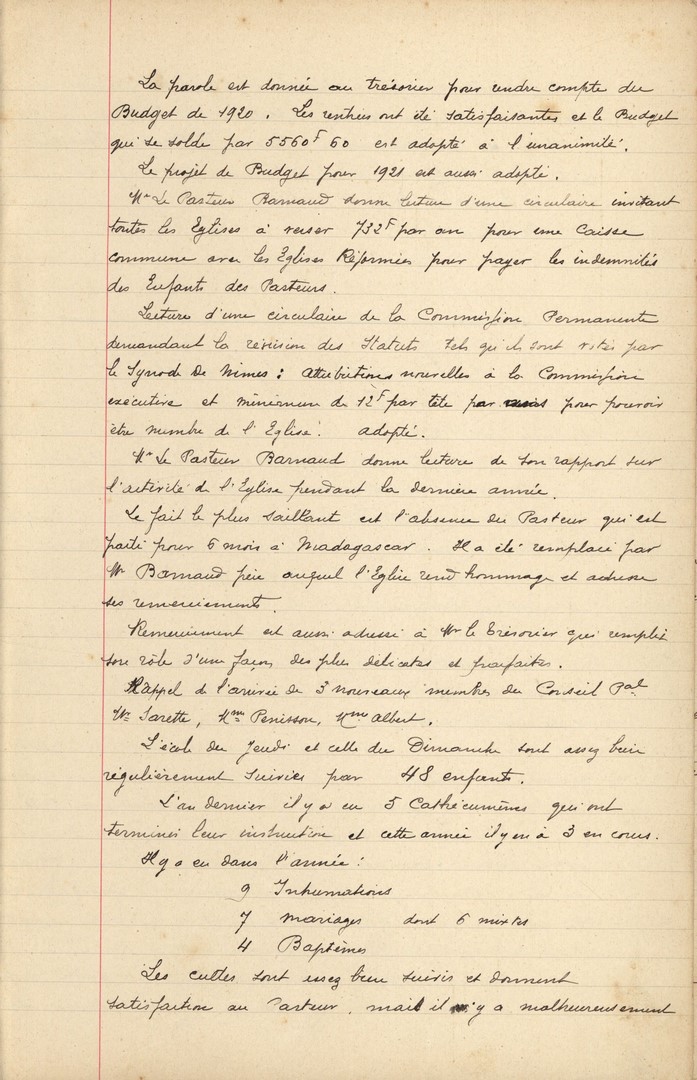 La parole est donnée au trésorier pour rendre compte du
Budget de 1920. Les rentrées ont été satisfaisantes et le Budget
qui se solde par 5560F60 est adopté à l'unanimité.
Le projet de Budget pour 1921 est aussi adopté.
Mr Le Pasteur Barnaud donne lecture d'une circulaire invitant
toutes les Eglises à verser 732F par an pour une Caisse
commune avec les Eglises Réformées pour payer les indemnités
des Enfants des Pasteurs.
Lecture d'une circulaire de la Commission Permanente
demandant la révision des Statuts tels qu'ils sont votés par
le Synode De Nimes : attributions nouvelles à la Commission
exécutive et minimum de 12F par tête par pour pouvoir
être membre de l'Eglise. adopté.
Mr Le Pasteur Barnaud donne lecture de son rapport sur
l'activité de l'Eglise pendant la dernière année.
Le fait le plus saillant est l'absence du Pasteur qui est
parti pour 6 mois à Madagascar. Il a été remplacé par
Mr Barnaud père auquel l'Eglise rend hommage et adresse
ses remerciements.
Remerciement est aussi adressé à Mr le Trésorier qui remplit
son rôle d'une façon des plus délicates et parfaites.
Rappel de l'arrivée de 3 nouveaux membres du Conseil Pal
Mr Sarette, Mme Penisson, Mme Albert.
L'école du Jeudi et celle du Dimanche sont assez bien
régulièrement suivies par 48 enfants.
L'an dernier il y a eu 5 Cathécumènes qui ont
terminé leur instruction et cette année il y en a 3 en cours.
Il y a eu dans l'année :
9 Inhumations
7 mariages dont 6 mixtes
4 Baptêmes
Les cultes sont assez bien suivis et donnent
satisfaction au Pasteur, mais il y a malheureusement